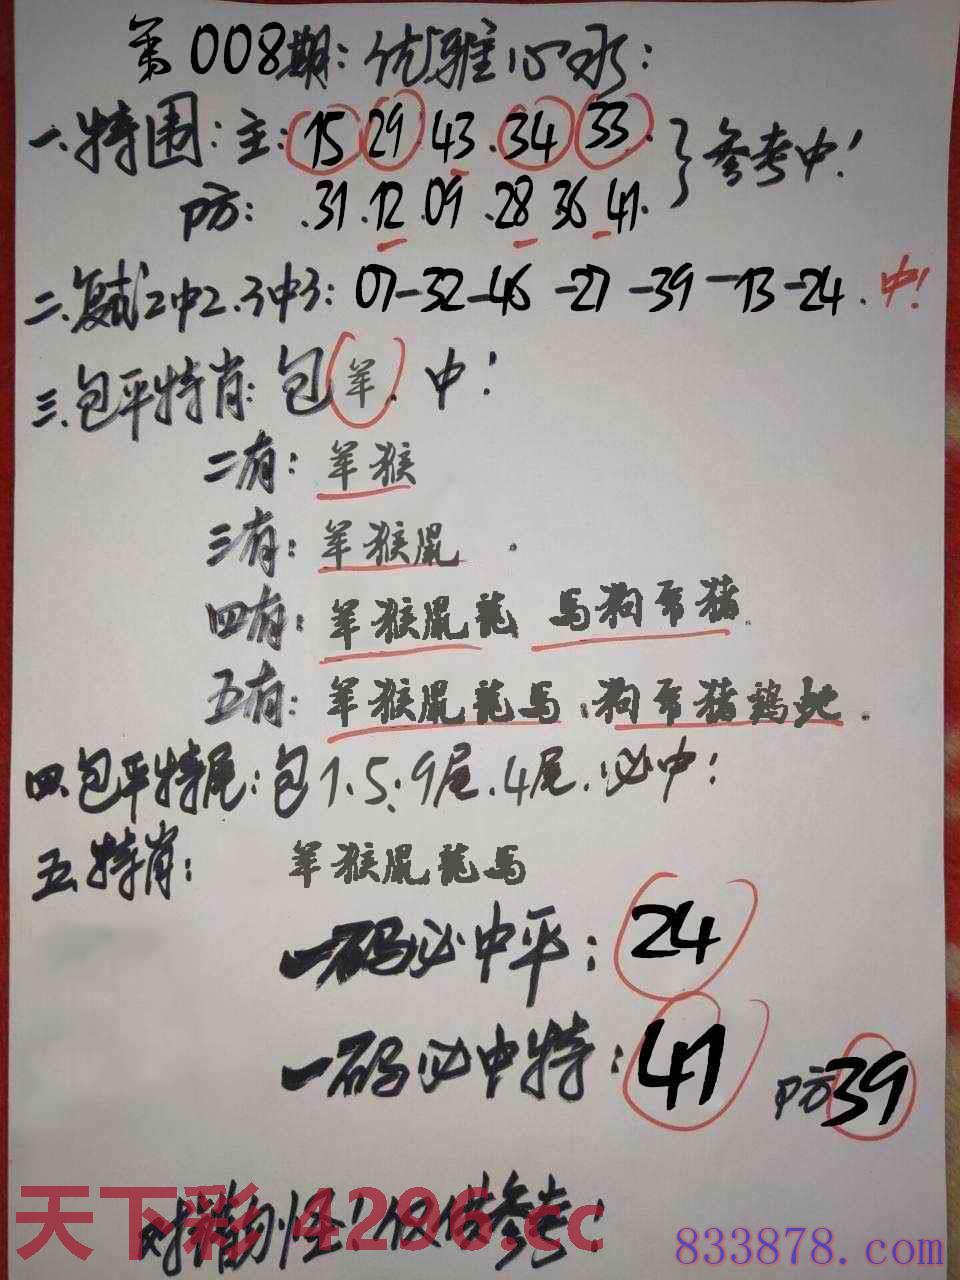 第008期:优雅心水:
一.特围:主:15 29 43.34 33.}参考中!
防: .31.12.09.28 36 41.
二.复试2中2.3中3:07-32-46-27-39-13-24.中!
三.包平特肖:包羊.中!
二有:羊猴
三有:羊猴鼠.
四有:羊猴鼠龍 馬狗 猪.
五有:羊猴鼠龍馬.狗 猪鸡蛇.
四.包平特尾:包1.5.9尾.4尾.必中!
五.特肖: 羊猴鼠龍馬
一码必中平:24
一码必中特:41 防39
对猜勿怪!仅供参考!
天下彩 4296.cc
833878.com